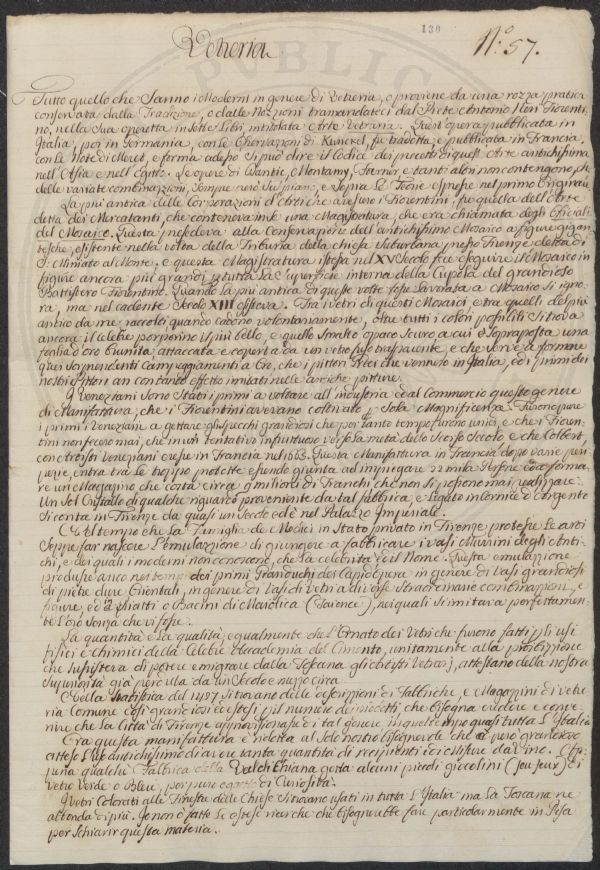 130
Vetreria
N.º 57.
Tutto quello che sanno i Moderni in genere di Vetreria, o proviene da una rozza pratica
conservata dalla Tradizione, o dalle Nozioni tramandateci dal Prete Antonio Neri Fiorenti-
no, nella sua operetta in sette Libri, intitolata Arte Vetraria. Quest'opera pubblicata in
Italia, poi in Germania, con le Osservazioni di Kunckel, fu tradotta, e pubblicata in Francia,
con le Note di Meret, e forma adesso si può dire il Codice dei precetti di quest'Arte antichissima
nell'Asia e nell'Egitto. Le opere di Dantic, Montamy, e tant'altri non contengono, che
delle variate combinazioni, sempre però sul piano, e sopra le Teorie espresse nel primo Originale.
La più antica delle Corporazioni d'Arti che avessero i Fiorentini, fu quella dell'Arte
detta dei Mercatanti, che conteneva in se una Magistratura, che era chiamata degli Ufiziali
del Mosaico. Questa presedeva alla Conservazione dell'antichissimo Mosaico a figure gigan-
tesche, esistente nella volta della Tribuna della chiesa suburbana presso Firenze detta di
S. Miniato al Monte, e questa Magistratura istessa nel XV Secolo fece eseguire il Mosaico in
figure ancora più grandi in tutta la superficie interna della Cupola del grandioso
Battistero Fiorentino. Quando la più antica di queste volte fosse lavorata a Mosaico si igno-
ra, ma nel cadente Secolo XIII esisteva. Tra i vetri di questi Mosaici e tra quelli del più
antico da me raccolti quando cadono volontariamente, oltre tutti i colori possibili si trova
ancora il celebre porporino il più bello, e quello smalto opaco scuro a cui è soprapposta una
foglia d'oro brunita, attaccata e coperta da un vetro fuso trasparente, e che serve a formare
quei sorprendenti Campeggiamenti a Oro, che i pittori Greci che vennero in Italia, ed i primi dei
nostri Pittori an con tanto effetto imitati nelle antiche pitture.
I Veneziani sono stati i primi a voltare all'industria ed al Commercio questo genere
di Manifattura, che i Fiorentini avevano coltivato per sola Magnificenza. Furono pure
i primi i Veneziani a gettare gli specchi grandiosi che per tanto tempo furono unici, e che i Fioren-
tini non fecero mai, che in un tentativo infruttuoso verso la metà dello scorso Secolo, e che Colbert,
con otto istri veneziani eresse in Francia nel 1665. Questa Manifattura in Francia dopo varie peri-
pezie, entra tra le troppo protette essendo giunta ad impiegare 22 mila Persone ed a forma-
re un Magazzino che costa circa 9 milioni di Franchi che non si possono mai realizzare.
Un sol Cristallo di qualche riguardo proveniente da tal fabbrica, e legato in cornice d'argento
si conta in Firenze da quasi un Secolo ed è nel Palazzo Imperiale.
Nel tempo che la Famiglia de Medici in Stato privato in Firenze protesse le arti
seppe far nascere l'emulazione di giungere a fabbricare i vasi Murrini degli Anti-
chi, e dei quali i moderni non conoscono, che la celebrità ed il Nome. Questa emulazione
produsse anco nei tempi dei primi Granduchi dei Capi d'opera in genere di Vasi grandiosi
di pietre dure Orientali, in genere di Vasi di Vetri a diverse straordinarie combinazioni, e
figure, ed in piatti o Bacini di Maiolica (Faience), nei quali si imitava perfettamen-
te l'oro senza che vi fosse.
La quantità e la qualità, egualmente che l'Ornato dei Vetri che furono fatti per gli usi
fisici e chimici della Celebre Accademia del Cimento, unitamente alla proibizione
che sussisteva di potere emigrare dalla Toscana gli artisti Vetraj, attestano della nostra
superiorità già perduta da un secolo e mezzo circa.
Nella Statistica del 1427. si trovano delle descrizioni di Fabbriche, e Magazzini di vetre-
ria Comune così grandiosi ed estesi, pel numero dei vecchi, che bisogna credere e conve-
nire che la città di Firenze approvisionasse di tal genere in quel tempo quasi tutta l'Italia.
Ora questa manifattura è ridotta al solo nostro bisogno che è però grandioso
atteso l'uso antichissimo di avere tanta quantità di recipienti ed il Misure da Vino. Ap-
pena qualche Fabbrica della Valdichiana getta alcuni piccoli giocolini (jou-joux) di
vetro Verde o Bleu, per puro oggetto di Curiosità.
I Vetri Colorati alle Finestre delle Chiese si trovano usati in tutta l'Italia ma la Toscana ne
abbonda di più. Io non ò fatte le estese ricerche che bisognerebbe fare particolarmente in Pisa
per schiarir questa materia.